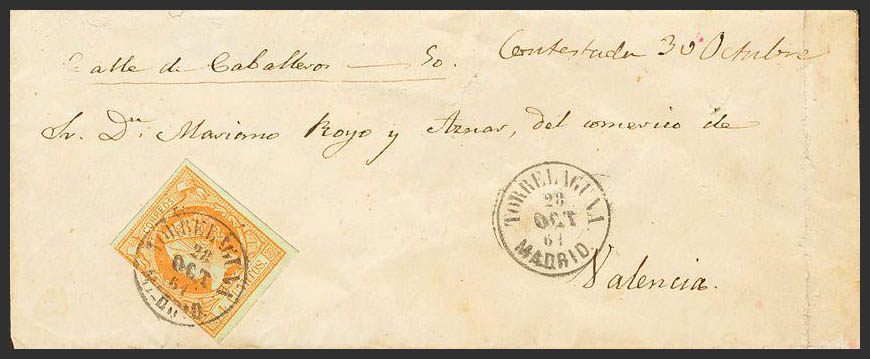 Calle de Caballeros — 50.
Contestada 30 Octubre
Sr. Dn. Mariano Royo y Aznar, del comercio de
Valencia.
TORRELAGUNA
28
OCT
61
MADRID
TORRELAGUNA
28
OCT
61
MADRID
CORREOS